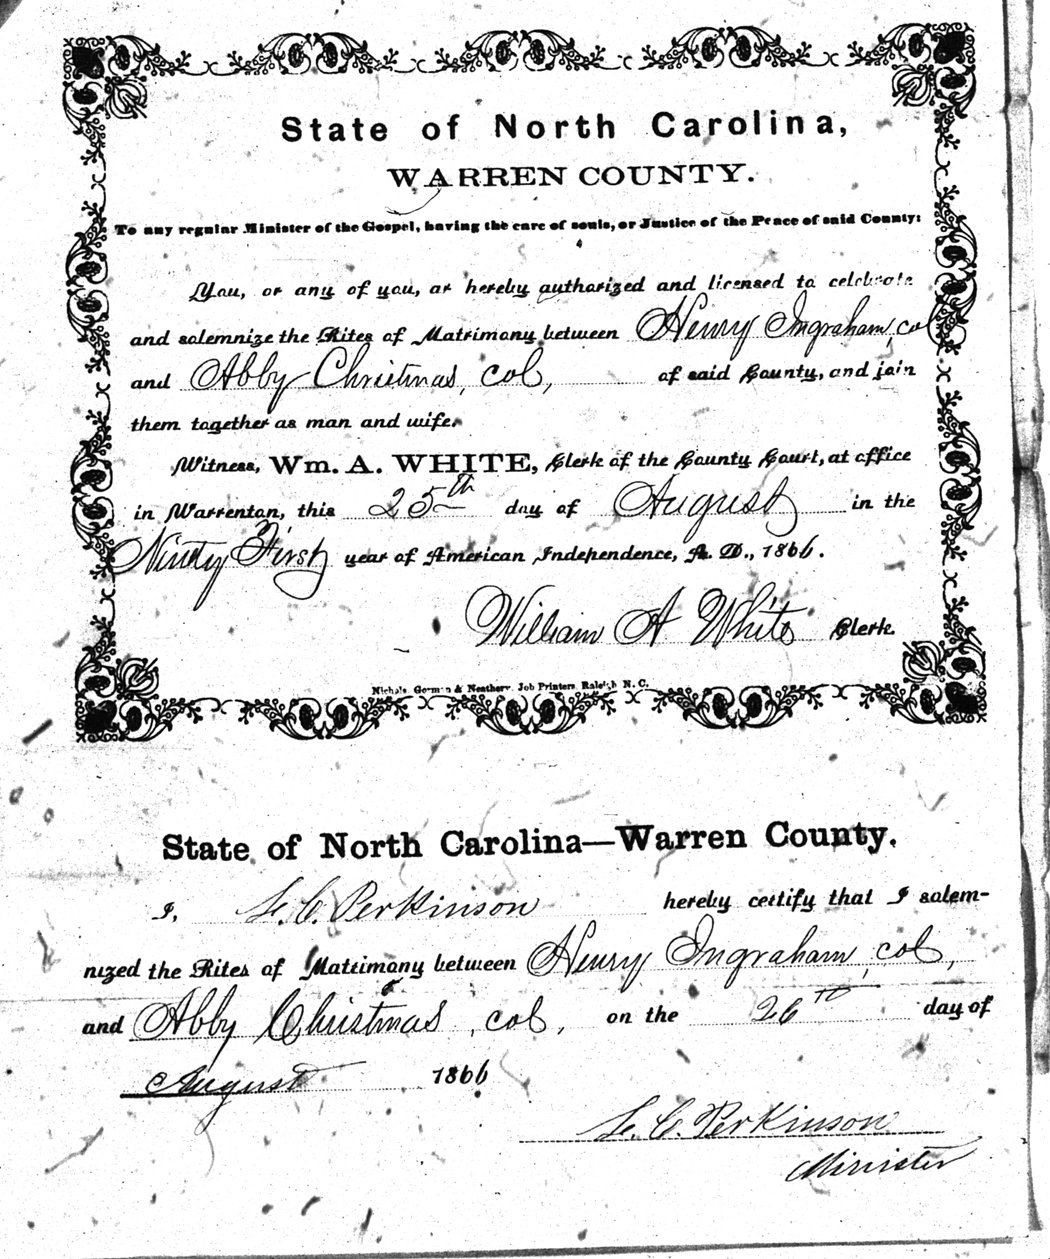 State of North Carolina,
WARREN COUNTY.
To any regular Minister of the Gospel, having the care of souls, or Justice of the Peace of said County:
You, or any of you, ar hereby authorized and licensed to celebrate
and solemnize the Rites of Matrimony between Henry Ingraham, col
and Abby Christmas, col, of said County, and join
them together as man and wife.
Witness, Wm. A. WHITE, Clerk of the County Court, at office
in Warrenton, this 25th day of August in the
Ninty First year of American Independence, A. D., 1866.
William A White Clerk.
Nichols, Gorman & Neathery, Job Printers, Raleigh N. C.
State of North Carolina—Warren County.
I, L. C. Perkinson hereby certify that I solem-
nized the Rites of Matrimony between Henry Ingraham, col,
and Abby Christmas, col, on the 26TH day of
August 1866
L. C. Perkinson
Minister